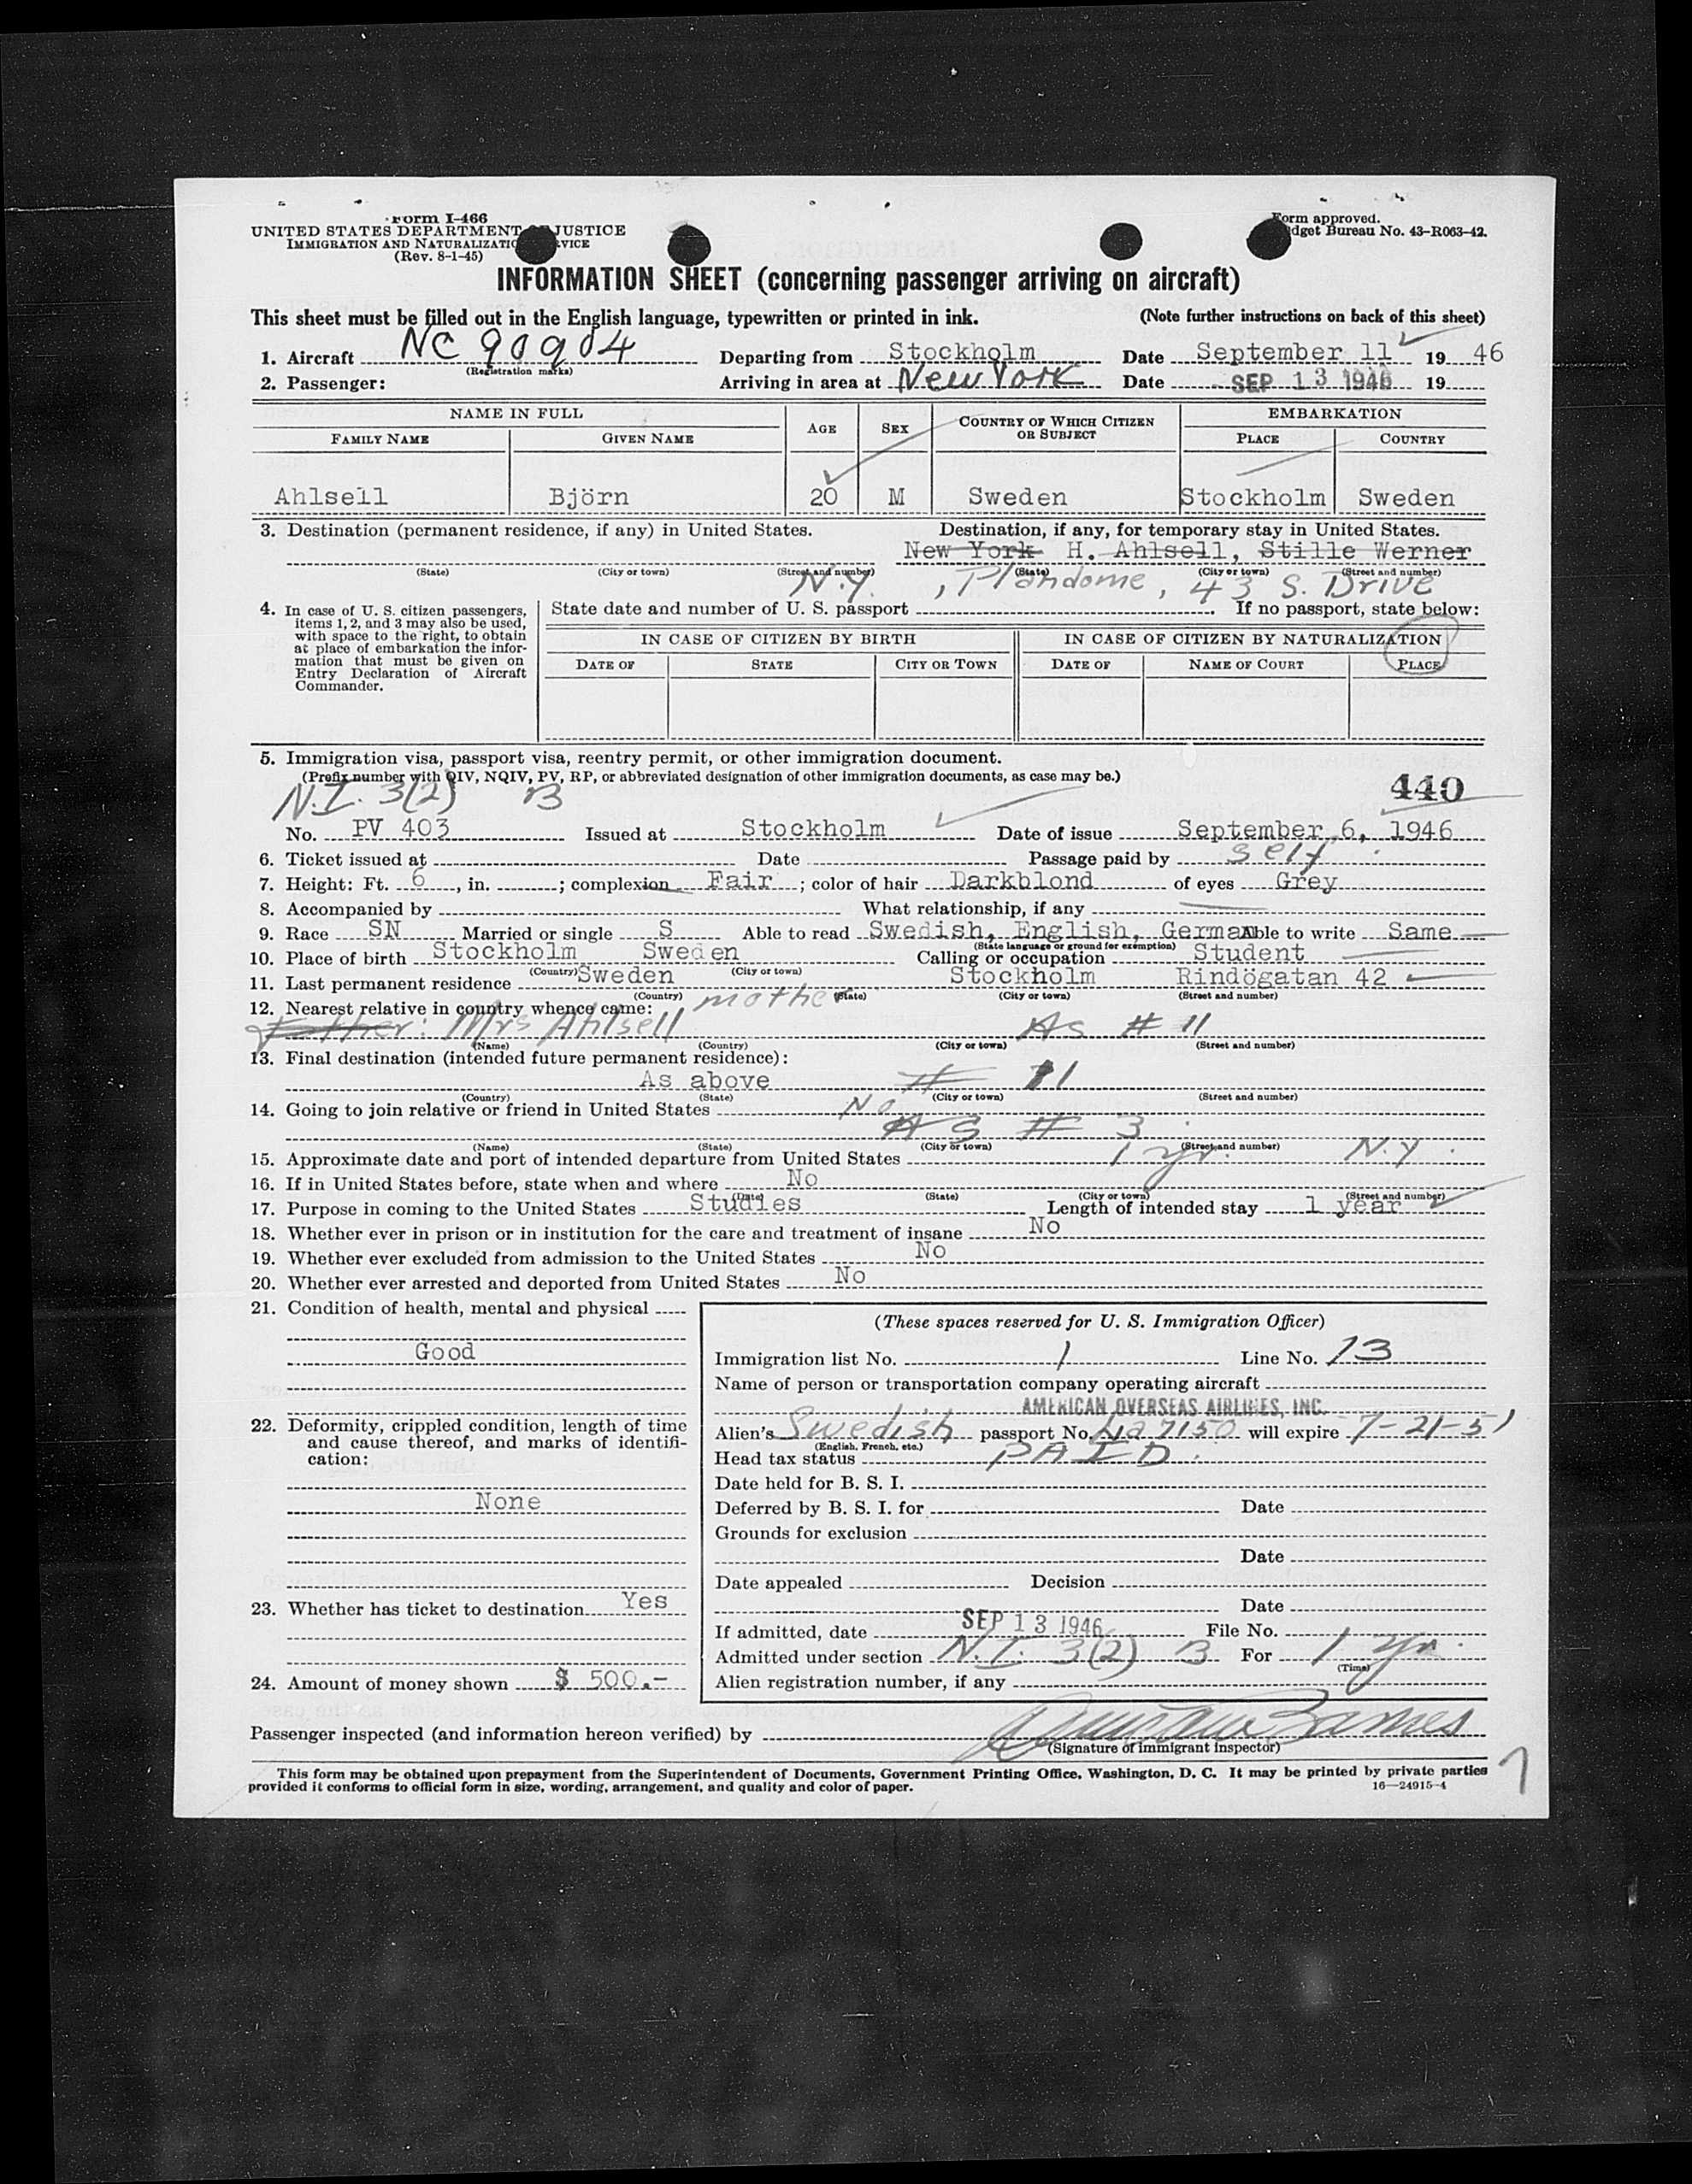 Form I-466
UNITED STATES DEPARTMENT JUSTICE
IMMIGRATION AND NATURALIZATION SERVICE
(Rev. 8-1-45)
Form approved.
Budget Bureau No. 43-R063-42.
INFORMATION SHEET (concerning passenger arriving on aircraft)
This sheet must be filled out in the English language, typewritten or printed in ink. (Note further instructions on back of this sheet)
1. Aircraft NC 90904 Departing from Stockholm Date September 11 19 46
(Registration marks)
2. Passenger: Arriving in area at New York Date SEP 13 1946 19
NAME IN FULL AGE SEX COUNTRY OF WHICH CITIZEN OR SUBJECT EMBARKATION
FAMILY NAME GIVEN NAME PLACE COUNTRY
Ahlsell Björn 20 M Sweden Stockholm Sweden
3. Destination (permanent residence, if any) in United States. Destination, if any, for temporary stay in United States.
New York H. Ahlsell, Stille Werner
(State) (City or town) (Street and number) (State) (City or town) (Street and number)
N.Y. , Plandome, 43 S. Drive
4. In case of U. S. citizen passengers, items 1, 2, and 3 may also be used, with space to the right, to obtain at place of embarkation the information that must be given on Entry Declaration of Aircraft Commander.
State date and number of U. S. passport If no passport, state below:
IN CASE OF CITIZEN BY BIRTH IN CASE OF CITIZEN BY NATURALIZATION
DATE OF STATE CITY OR TOWN DATE OF NAME OF COURT PLACE
5. Immigration visa, passport visa, reentry permit, or other immigration document.
(Prefix number with QIV, NQIV, PV, RP, or abbreviated designation of other immigration documents, as case may be.)
N.I. 3(2) B 440
No. PV 403 Issued at Stockholm Date of issue September 6, 1946
6. Ticket issued at Date Passage paid by self
7. Height: Ft. 6, in. ; complexion Fair ; color of hair Darkblond of eyes Grey
8. Accompanied by What relationship, if any
9. Race SN Married or single S Able to read Swedish, English, German Able to write Same
(State language or ground for exemption)
10. Place of birth Stockholm Sweden Calling or occupation Student
(Country) (City or town)
11. Last permanent residence Sweden Stockholm Rindögatan 42
(Country) (State) (City or town) (Street and number)
12. Nearest relative in country whence came: mother
Father: Mrs Ahlsell As # 11
(Name) (Country) (City or town) (Street and number)
13. Final destination (intended future permanent residence):
As above # 11
(Country) (State) (City or town) (Street and number)
14. Going to join relative or friend in United States No
As # 3
(Name) (State) (City or town) (Street and number)
15. Approximate date and port of intended departure from United States 1 yr. N.Y.
16. If in United States before, state when and where No
(Date) (State) (City or town) (Street and number)
17. Purpose in coming to the United States Studies Length of intended stay 1 year
18. Whether ever in prison or in institution for the care and treatment of insane No
19. Whether ever excluded from admission to the United States No
20. Whether ever arrested and deported from United States No
21. Condition of health, mental and physical
Good
22. Deformity, crippled condition, length of time and cause thereof, and marks of identification:
None
23. Whether has ticket to destination Yes
24. Amount of money shown $ 500.-
(These spaces reserved for U. S. Immigration Officer)
Immigration list No. 1 Line No. 13
Name of person or transportation company operating aircraft
AMERICAN OVERSEAS AIRLINES, INC.
Alien's Swedish passport No. 7150 will expire 7-21-51
(English, French, etc.)
Head tax status PAID.
Date held for B. S. I.
Deferred by B. S. I. for Date
Grounds for exclusion
Date
Date appealed Decision
Date
If admitted, date SEP 13 1946 File No.
Admitted under section N.I. 3(2) B For 1 yr.
(Time)
Alien registration number, if any
Passenger inspected (and information hereon verified) by
(Signature of immigrant inspector)
This form may be obtained upon prepayment from the Superintendent of Documents, Government Printing Office, Washington, D. C. It may be printed by private parties
provided it conforms to official form in size, wording, arrangement, and quality and color of paper. 16—24915-4